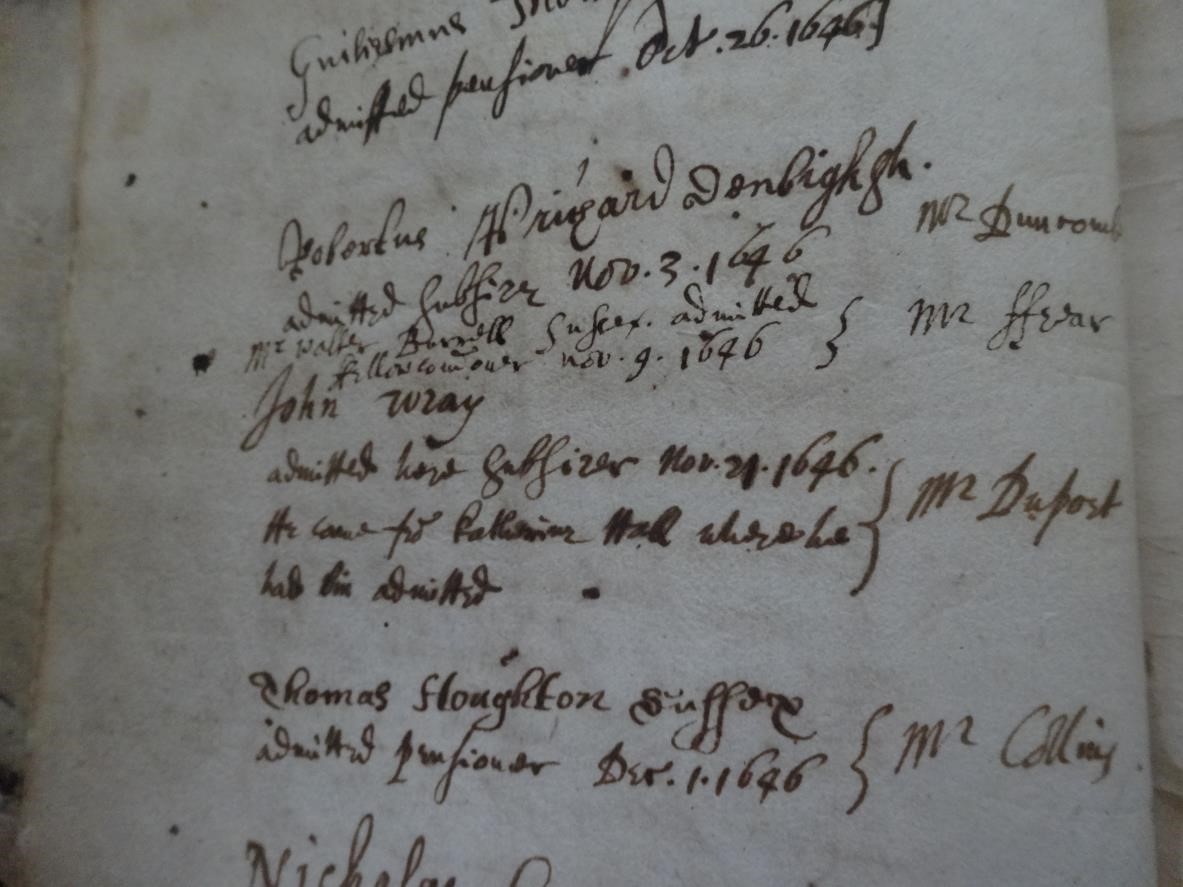 Guilielmus
admitted pensioner Oct. 26. 1646
Robertus Pricjard Denbighsh.
admitted subsizer Nov. 3. 1646 Mr Duncomb
Mr Walter Burrell Sussex. admitted
fellowcomoner Nov. 9. 1646 } Mr ffrear
John Wray
admitted here subsizer Nov. 21. 1646.
He came fro Katherine Hall where he } Mr Duport
had bin admitted
Thomas Houghton Suffex
admitted pensioner Dec. 1. 1646 { Mr Collins
Nicholas